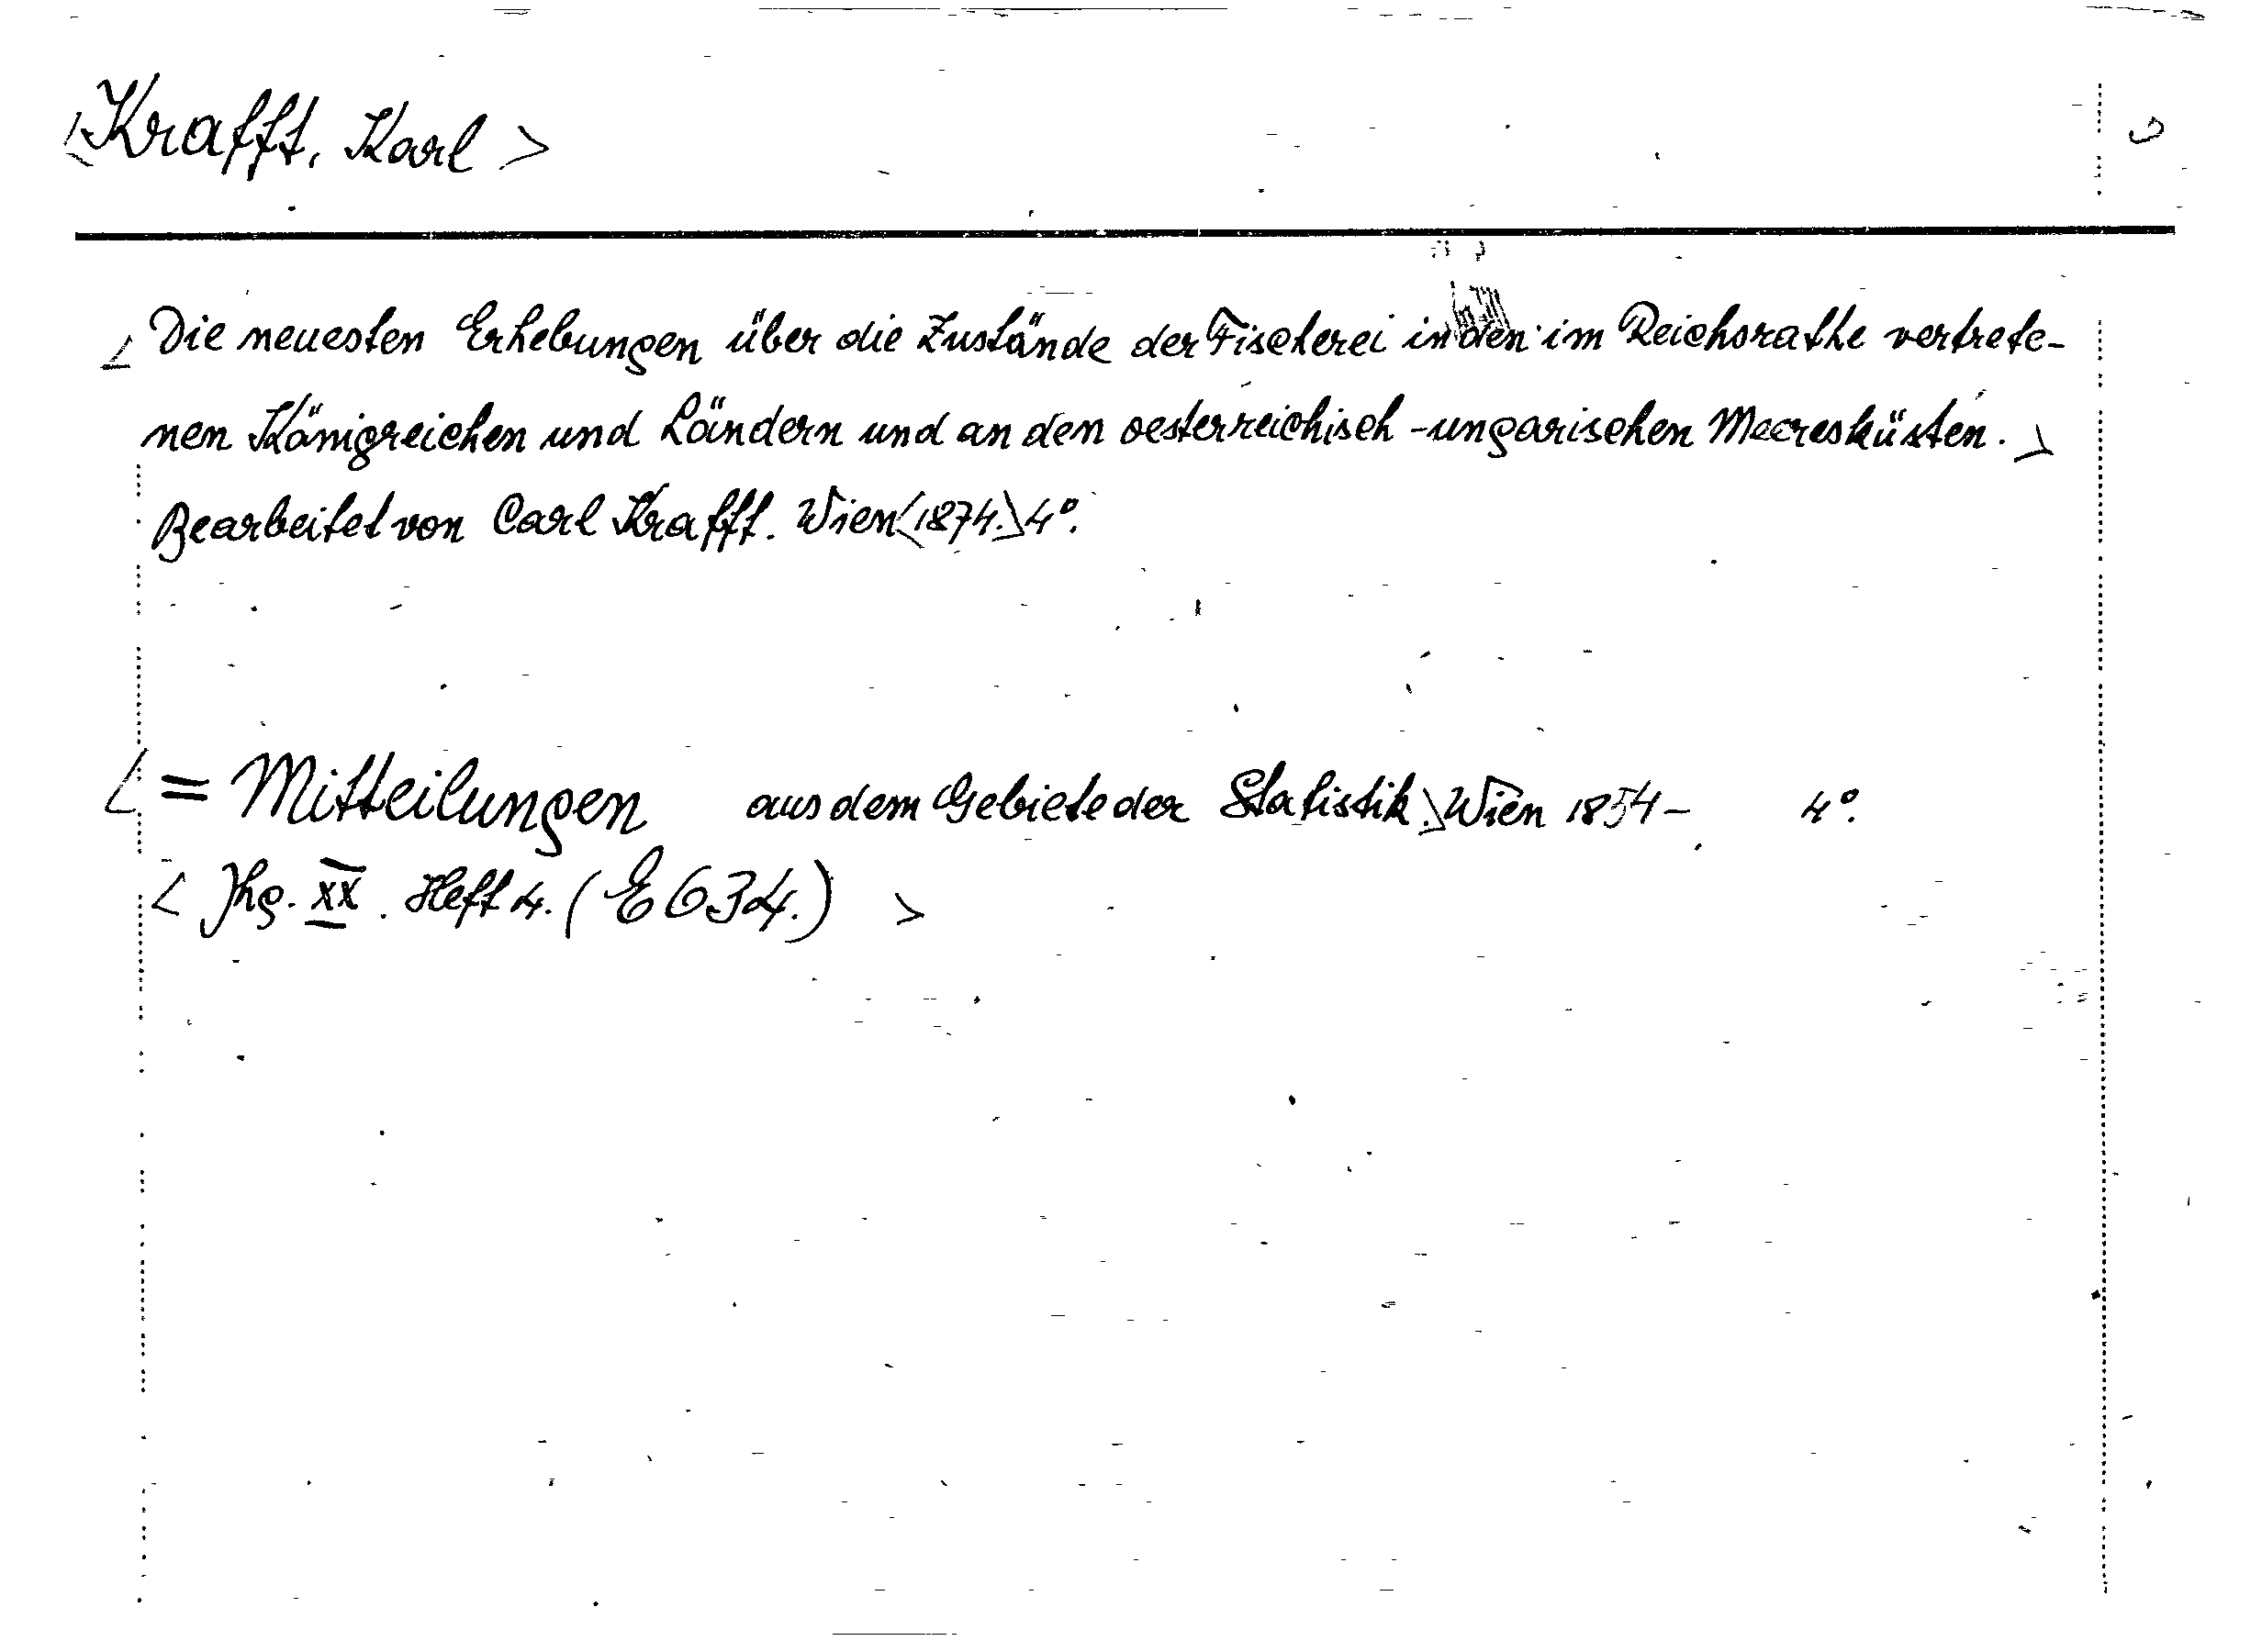 <Krafft, Karl>
<Die neuesten Erhebungen über die Zustände der Fischerei in den im Reichsrathe vertrete-
nen Königreichen und Ländern und an den oesterreichisch-ungarischen Meeresküsten.>
Bearbeitet von Carl Krafft. Wien<1874.>4°.
<= Mitteilungen aus dem Gebiete der Statistik.>Wien 1854- 4°.
< Jhg. XX. Heft 4. (E 634.) >